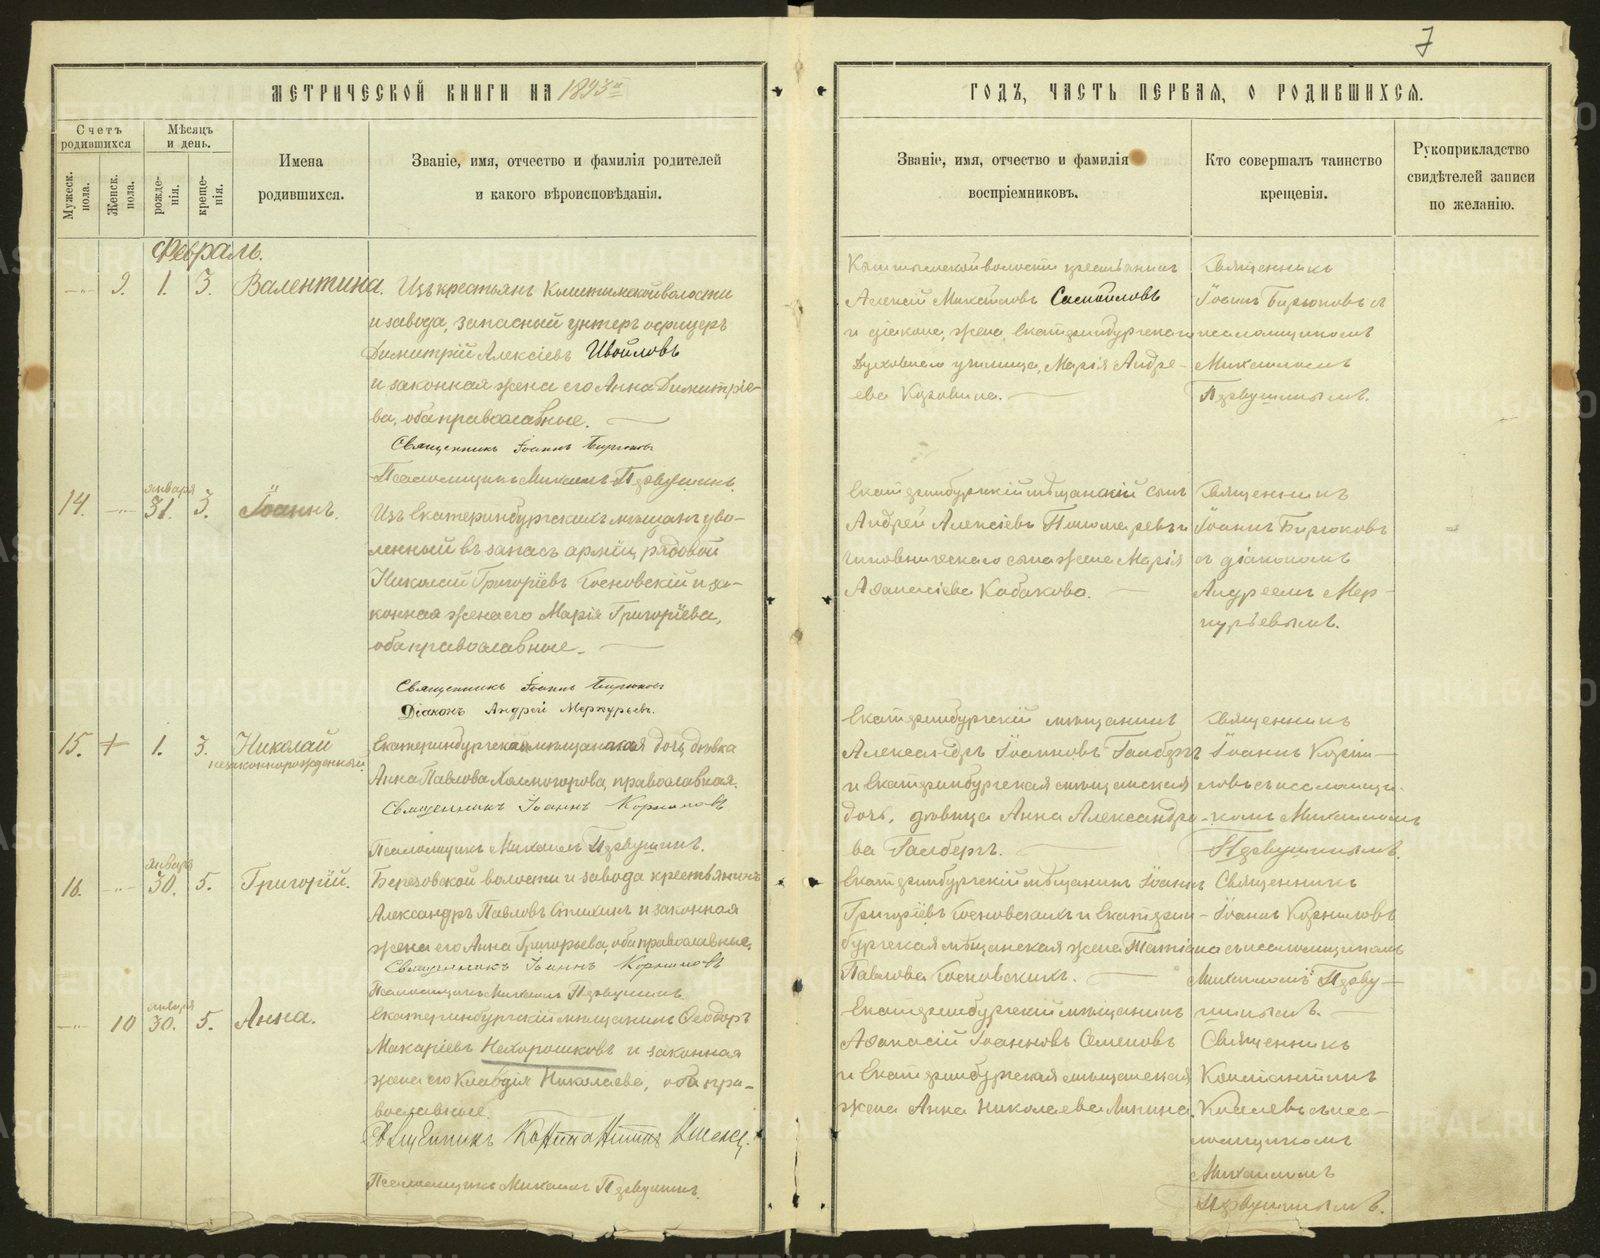 7
МЕТРИЧЕСКОЙ КНИГИ НА 1893й
ГОДЪ, ЧАСТЬ ПЕРВАЯ, О РОДИВШИХСЯ.
Счетъ родившихся
Мужеск. пола.
Женск. пола.
Мѣсяцъ и день.
рожденія.
крещенія.
Имена родившихся.
Званіе, имя, отчество и фамилія родителей
и какого вѣроисповѣданія.
Званіе, имя, отчество и фамилія
воспріемниковъ.
Кто совершалъ таинство
крещенія.
Рукоприкладство
свидѣтелей записи
по желанію.
Февраль.
9. 1. 3. Валентина.
Изъ крестьянъ Кыштымской волости
и завода, запасный унтеръ офицеръ
Димитрій Алексіевъ
и законная жена его Анна Димитріе-
ва, оба православные.
Священникъ Іоаннъ Бирюковъ
Псаломщикъ Михаилъ
Кыштымской волости крестьянинъ
Алексій Михайловъ
и діакона, жена, Екатеринбургскаго
Духовнаго училища, Марія Андре-
ева
Священникъ
Іоаннъ Бирюковъ съ
псаломщикомъ
Михаиломъ
14. января 31. 3. Іоаннъ.
Изъ Екатеринбургскихъ мѣщанъ уво-
ленный въ запасъ арміи, рядовой
Николай Григоріевъ Сосновскій и за-
конная жена его Марія Григоріева,
оба православные.
Священникъ Іоаннъ Бирюковъ
Діаконъ Андрей Меркурьевъ.
Екатеринбургскій мѣщанскій сынъ
Андрей Алексіевъ Пономаревъ и
чиновническаго сына жена Марія
Аѳанасіева Кабакова.
Священникъ
Іоаннъ Бирюковъ
съ діакономъ
Андреемъ Мер-
курьевымъ.
15. 1. 3. Николай
незаконнорожденный
Екатеринбургская мѣщанская дочь, дѣвка
Анна Павлова Холмогорова, православная.
Священникъ Іоаннъ Корниловъ
Псаломщикъ Михаилъ
Екатеринбургскій мѣщанинъ
Александръ Іоанновъ Галбергъ
и Екатеринбургская мѣщанская
дочь, дѣвица Анна Александро-
ва Галбергъ.
Священникъ
Іоаннъ Корни-
ловъ съ псаломщи-
комъ Михаиломъ
16. января 30. 5. Григорій.
Березовской волости и завода крестьянинъ
Александръ Павловъ и законная
жена его Анна Григорьева, оба православные.
Священникъ Іоаннъ Корниловъ
Псаломщикъ Михаилъ
Екатеринбургскій мѣщанинъ Іоаннъ
Григоріевъ Сосновскихъ и Екатерин-
бургская мѣщанская жена Татіана
Павлова Сосновскихъ.
Священникъ
Іоаннъ Корниловъ
съ псаломщикомъ
Михаиломъ
10 января 30. 5. Анна.
Екатеринбургскій мѣщанинъ Ѳеодоръ
Макаріевъ Нехорошковъ и законная
жена его Клавдія Николаева, оба пра-
вославные.
Священникъ Константинъ
Псаломщикъ Михаилъ
Екатеринбургскій мѣщанинъ
Аѳанасій Іоанновъ Семеновъ
и Екатеринбургская мѣщанская
жена Анна Николаева
Священникъ
Константинъ
съ пса-
ломщикомъ
Михаиломъ
METRIKI.GASO-URAL.RU